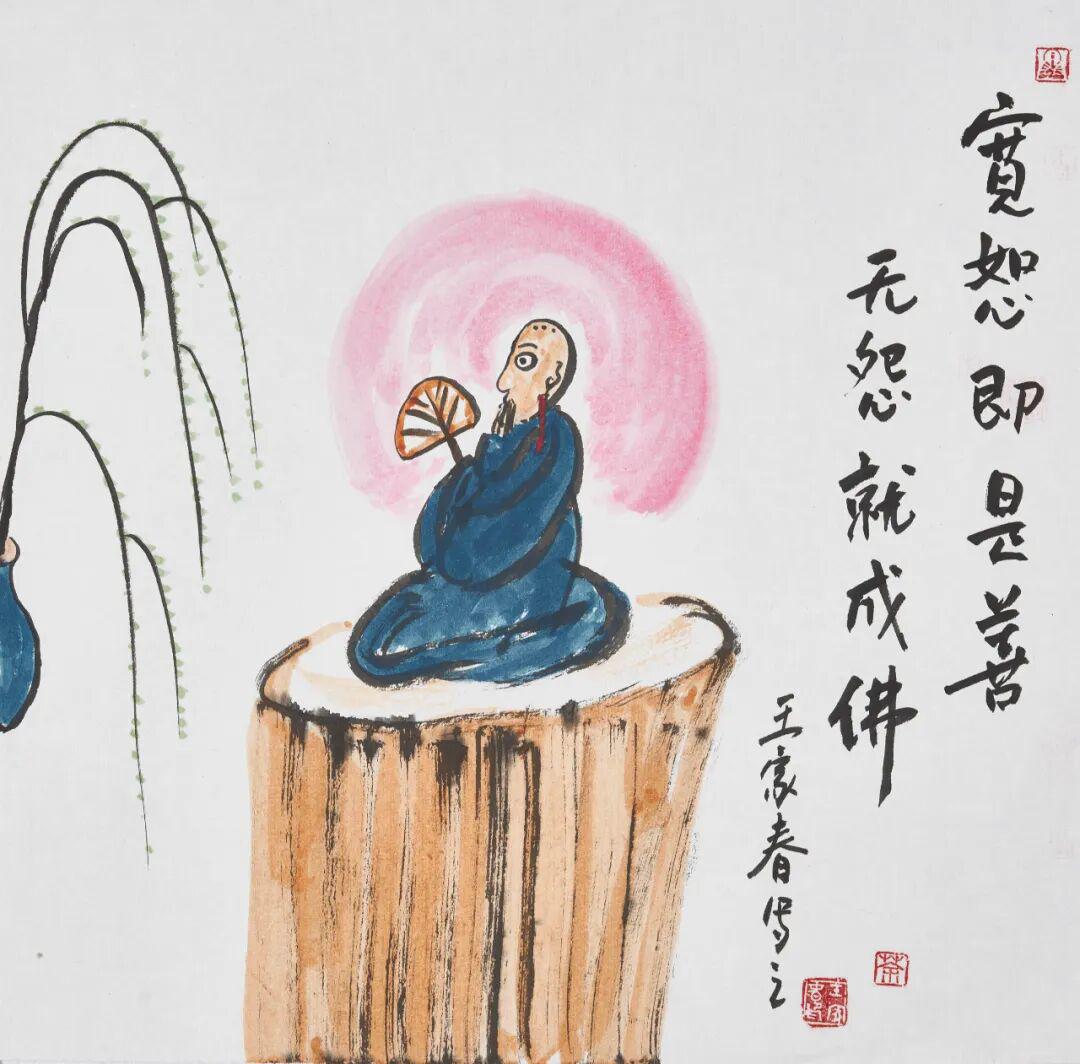 寬恕即是善
无怨就成佛
王家春写之
茶